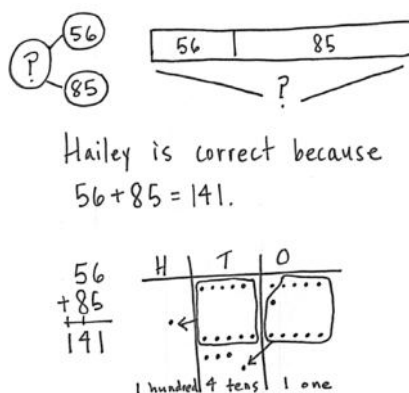 56
?
85
56 85
?
Hailey is correct because
56 + 85 = 141.
56
+ 85
141
H T O
1 hundred 4 tens 1 one